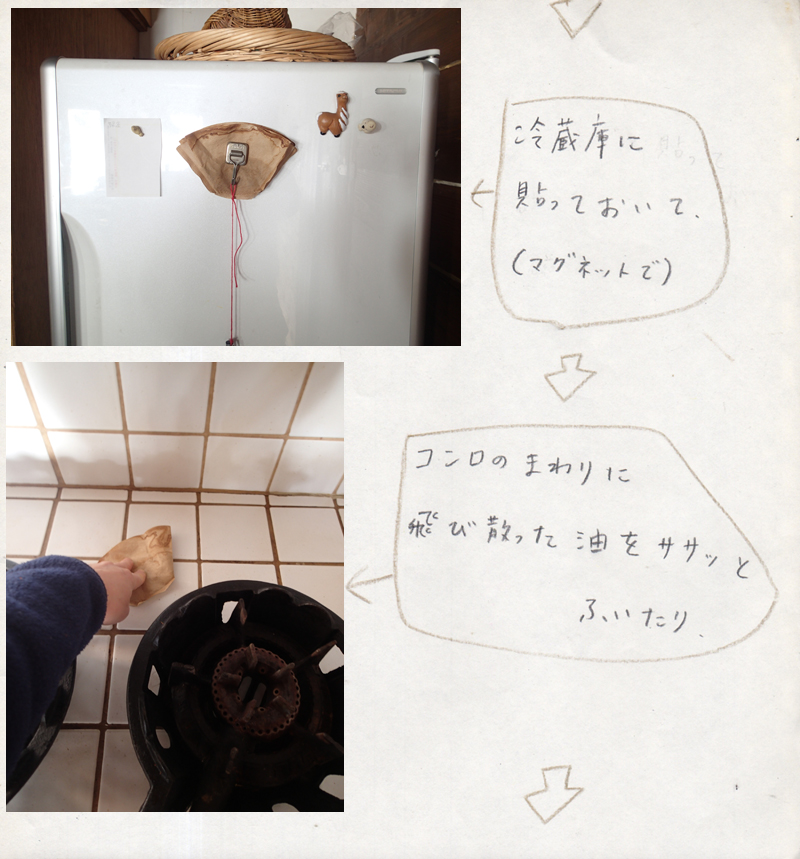 冷蔵庫に
貼っておいて、
(マグネットで)
コンロのまわりに
飛び散った油をササッと
ふいたり、